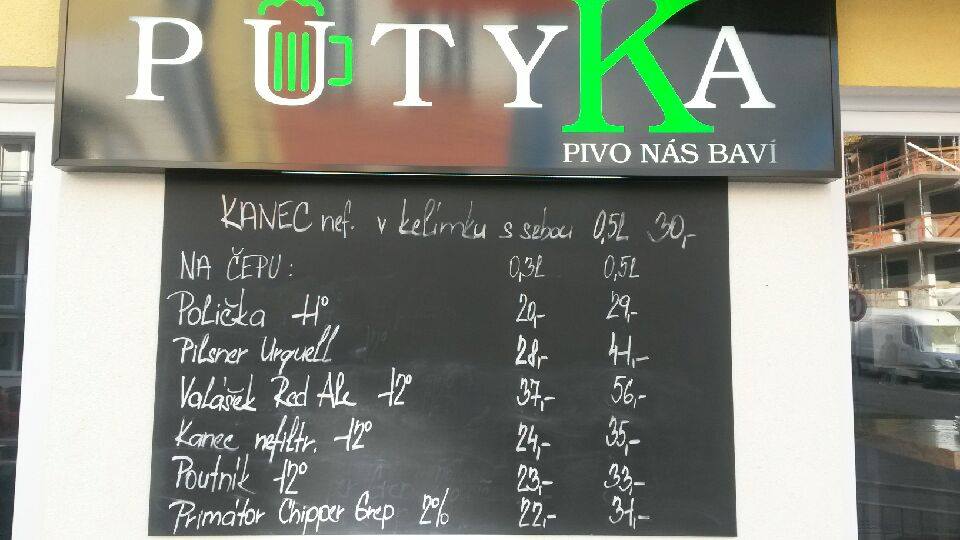 PUTYKA
PIVO NÁS BAVÍ
KANEC nef. v kelímku s sebou 0,5L 30,-
NA ČEPU: 0,3L 0,5L
Polička 11° 20,- 29,-
Pilsner Urquell 28,- 41,-
Valášek Red Ale 12° 37,- 56,-
Kanec nefiltr. 12° 24,- 35,-
Poutník 12° 23,- 33,-
Primátor Chipper Grep 2% 22,- 31,-